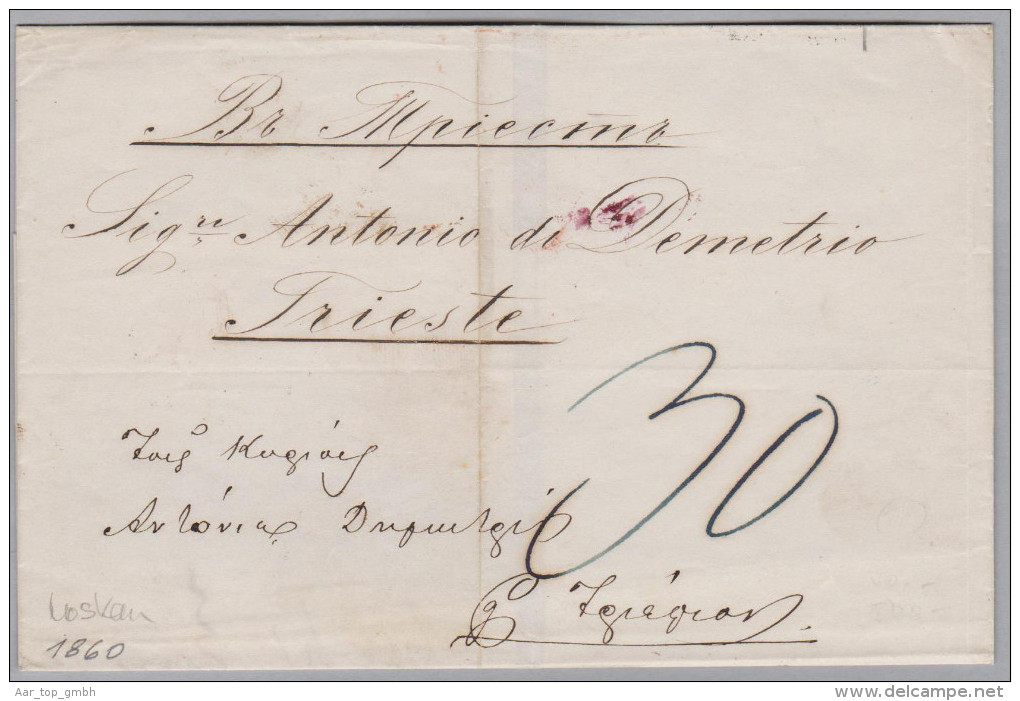 Въ Тріестъ
Sigri Antonio di Demetrio
Trieste
30
Τοῖς Κυρίοις
Ἀντόνιο Δημητρίῳ
Τριέστιον
Moskau
1860
Aar_top_gmbh
www.delcampe.net